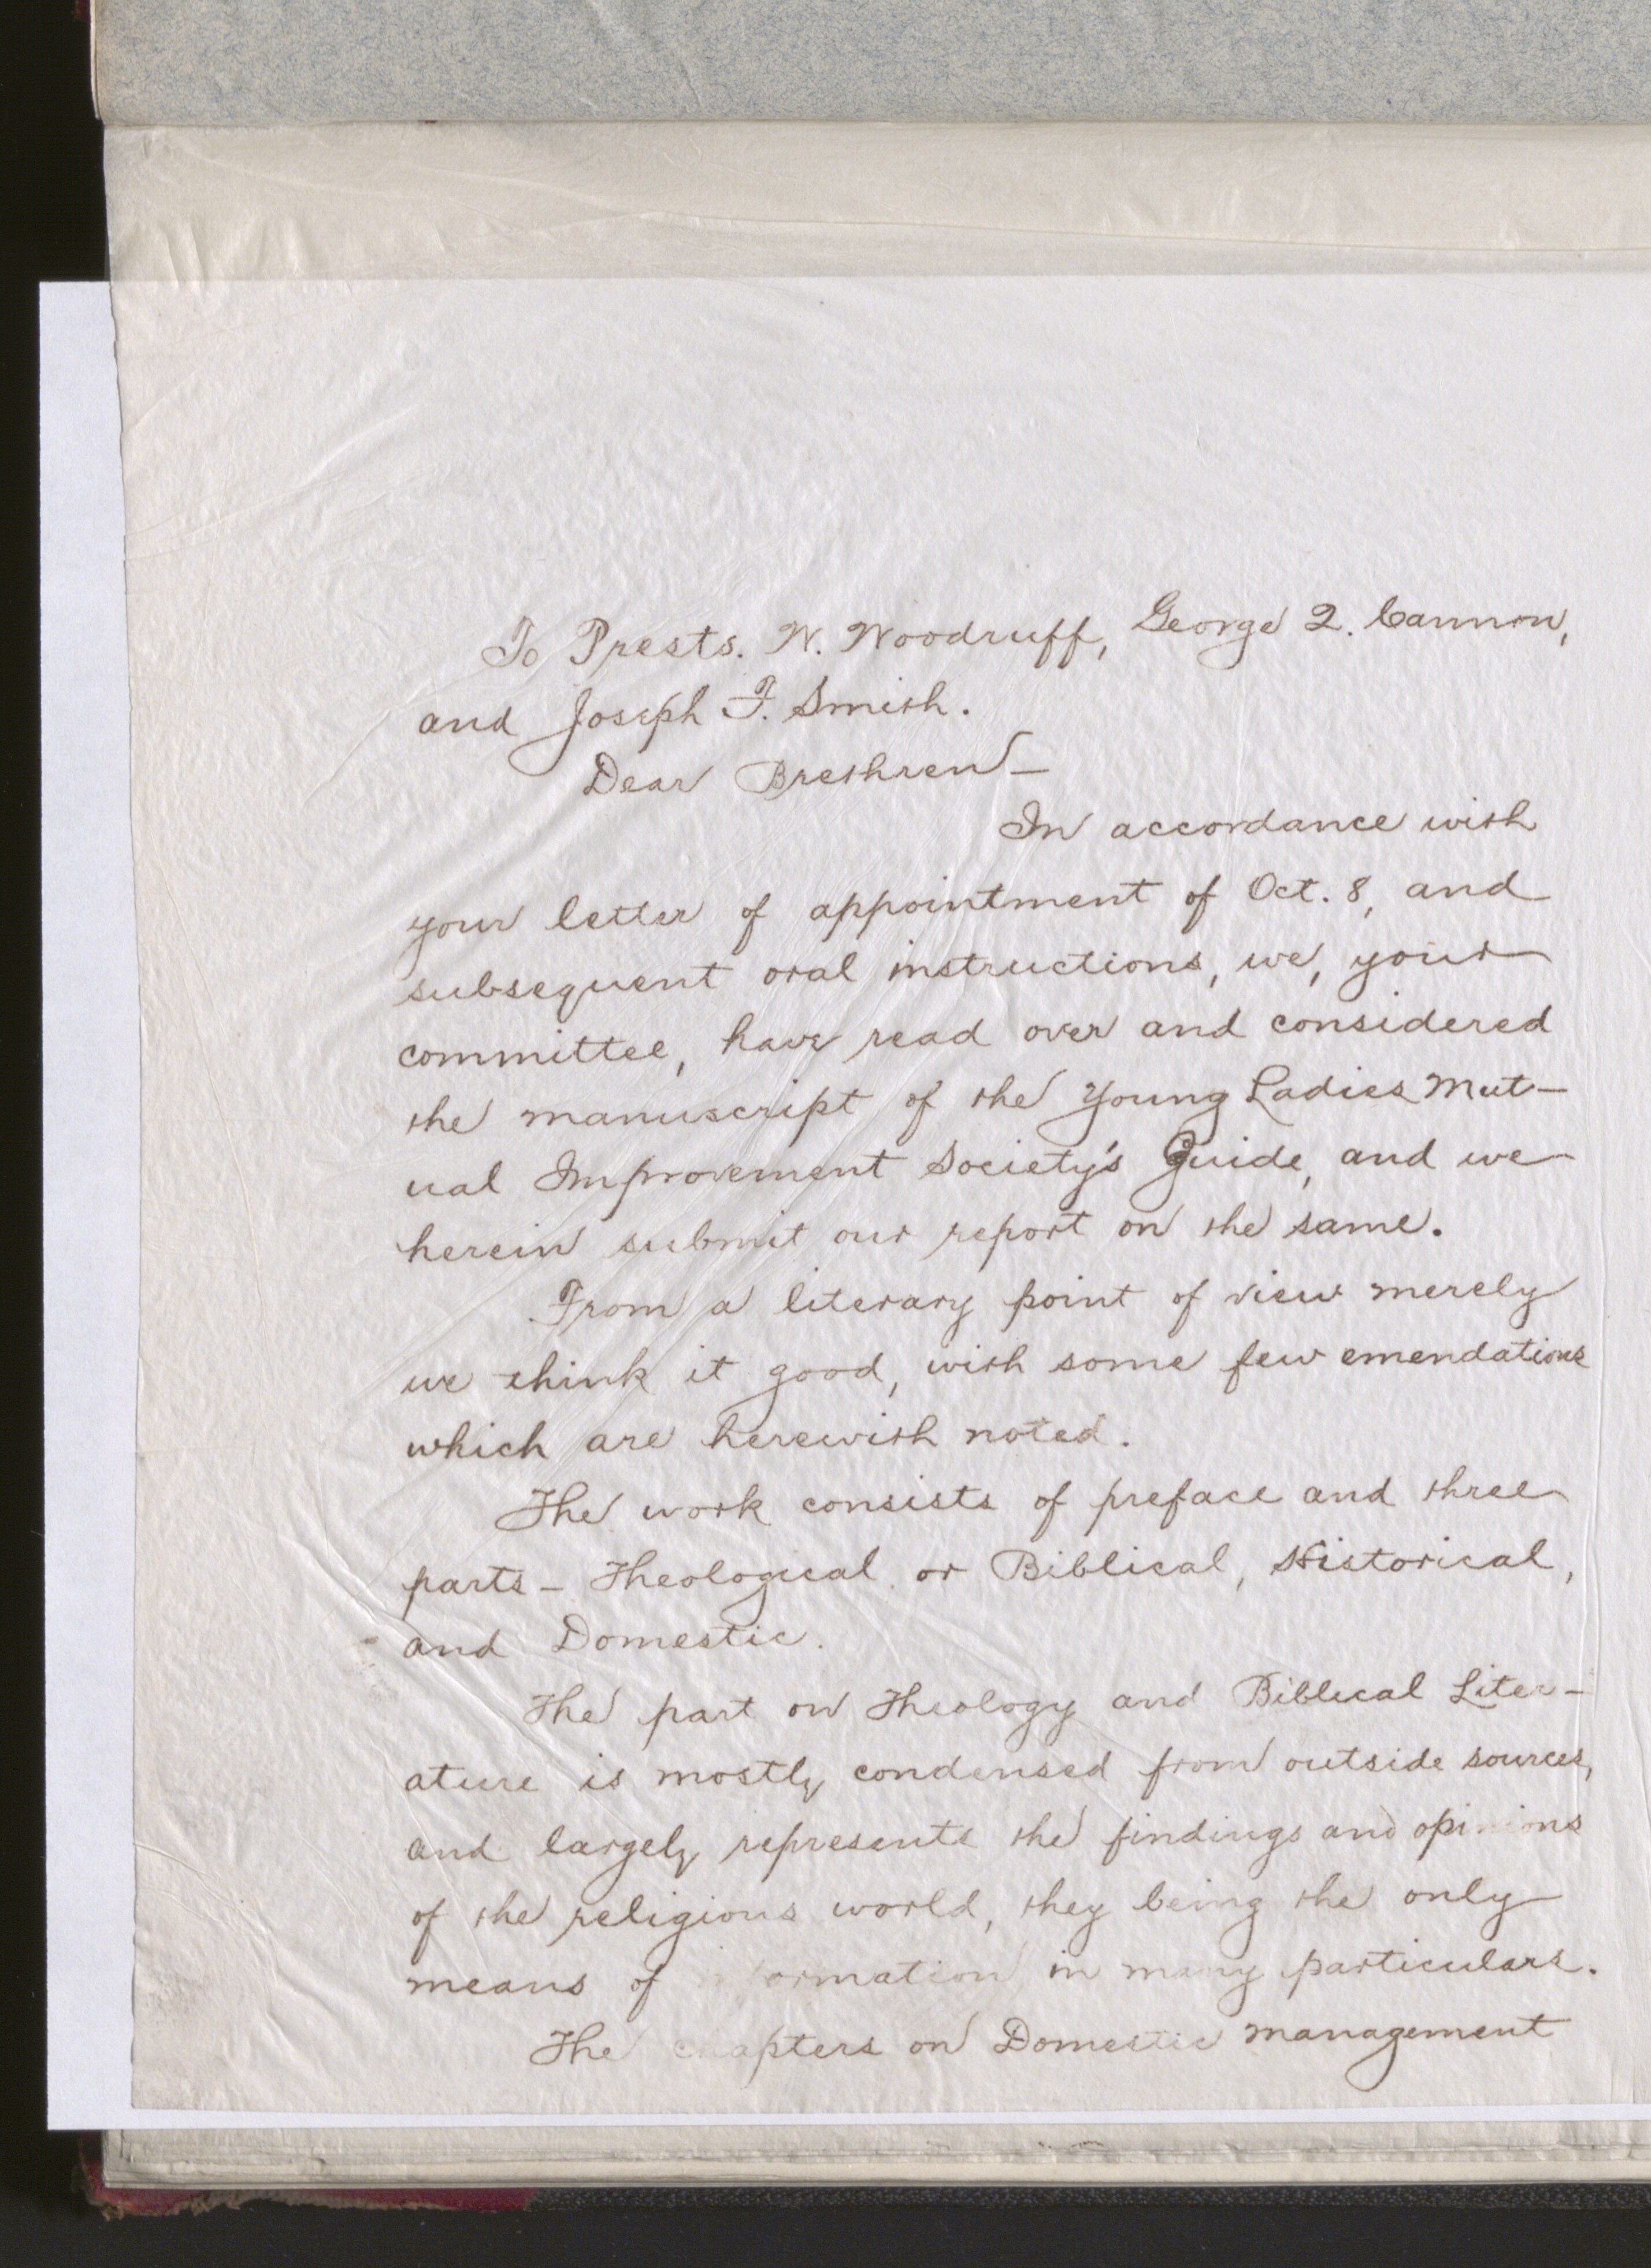 To Prests. W. Woodruff, George Q. Cannon,
and Joseph F. Smith.
Dear Brethren—
In accordance with
your letter of appointment of Oct. 8, and
subsequent oral instructions, we, your
committee, have read over and considered
the manuscript of the Young Ladies Mut-
ual Improvement Society's Guide, and we
herein submit our report on the same.
From a literary point of view merely
we think it good, with some few emendations
which are herewith noted.
The work consists of preface and three
parts — Theological or Biblical, Historical,
and Domestic.
The part on Theology and Biblical Liter-
ature is mostly condensed from outside sources,
and largely represents the findings and opinions
of the religious world, they being the only
means of information in many particulars.
The chapters on Domestic management